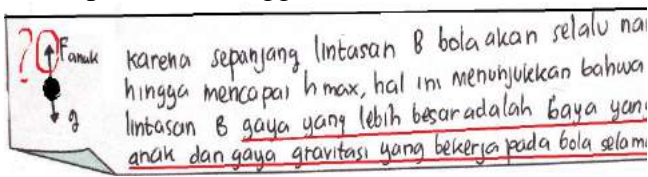 ?
F anak
g
karena sepanjang lintasan B bola akan selalu nai
hingga mencapai h max, hal ini menunjukkan bahwa
lintasan B gaya yang lebih besar adalah Gaya yang
anak dan gaya gravitasi yang bekerja pada bola selama